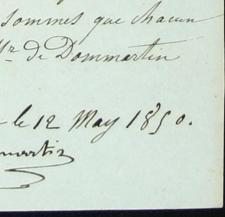 sommes que chacun
Mr de Dommartin
le 12 May 1850.
martin